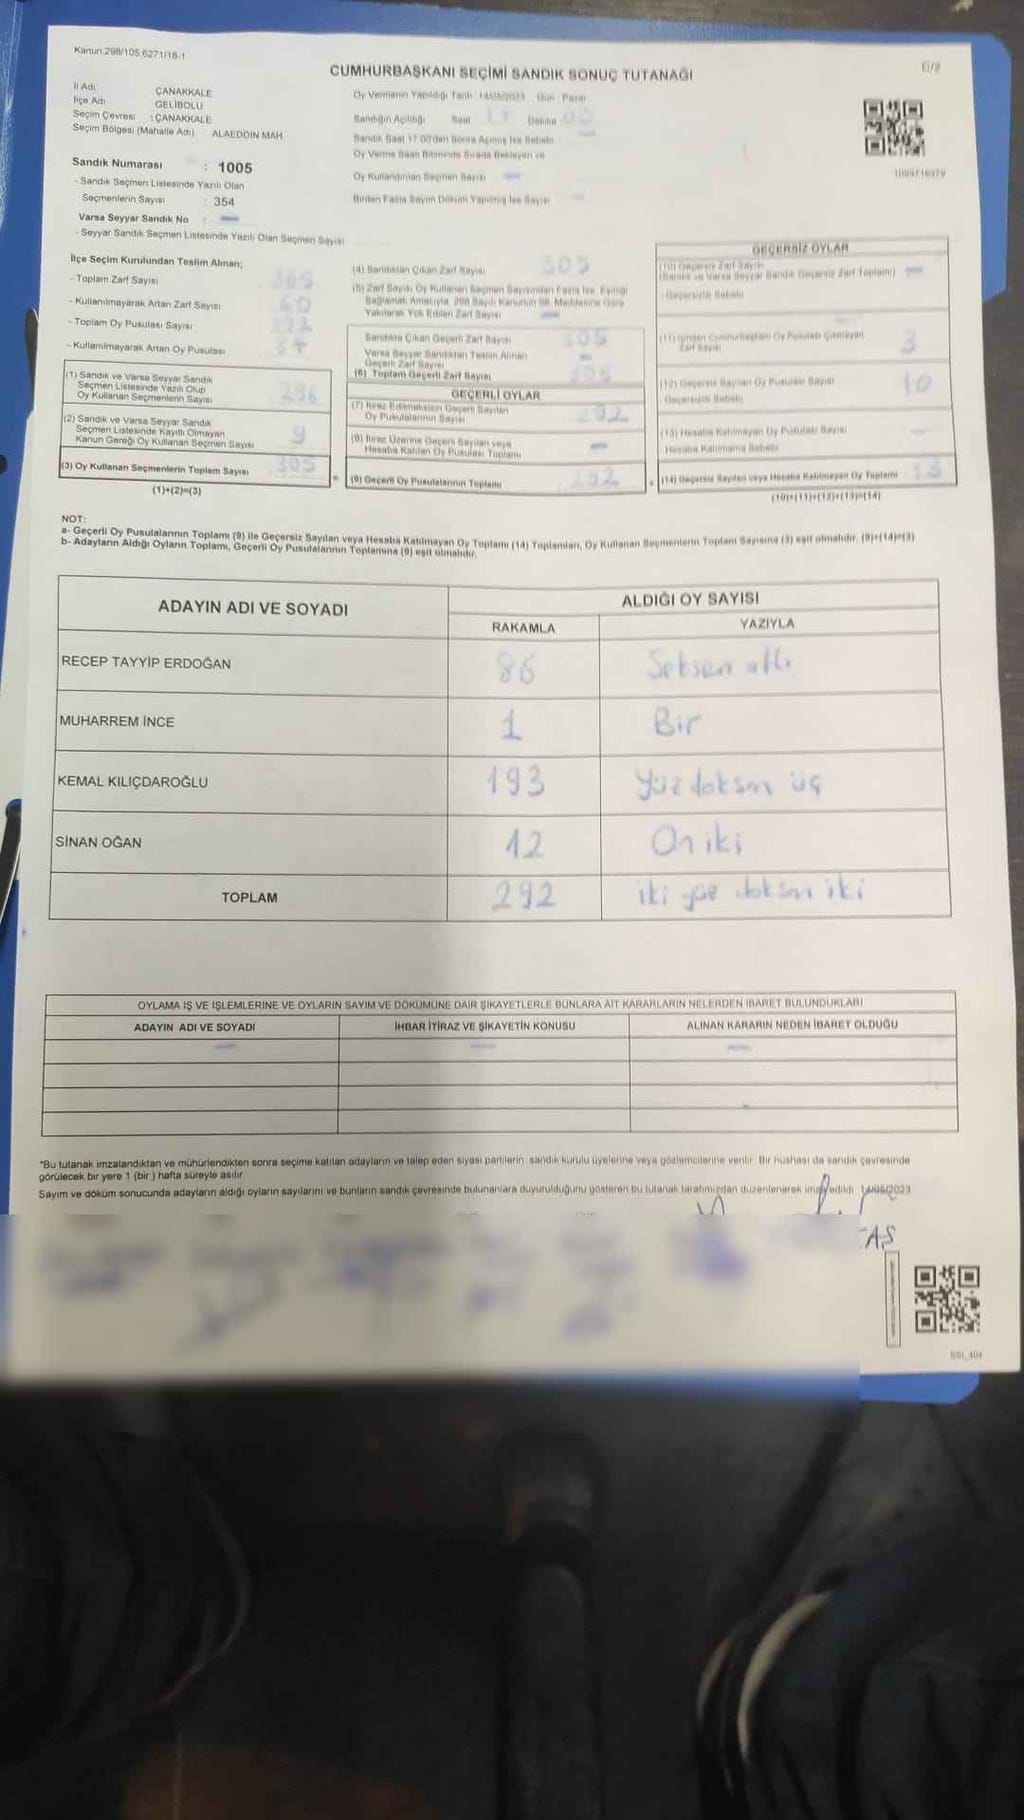 Kanun:298/105,6271/18-1
CUMHURBAŞKANI SEÇİMİ SANDIK SONUÇ TUTANAĞI
İl Adı ÇANAKKALE
İlçe Adı GELİBOLU
Seçim Çevresi : ÇANAKKALE
Seçim Bölgesi (Mahalle Adı) ALAEDDİN MAH
Oy Vermenin Yapıldığı Tarih 14/05/2023 Gün Pazar
Sandığın Açıldığı Saat 17 Dakika
Sandık Saat 17:00'den Sonra Açılmış İse Sebebi
Oy Verme Saati Bitiminde Sırada Bekleyen ve
Oy Kullandırılan Seçmen Sayısı
Birden Fazla Sayım Döküm Yapılmış İse Sayısı
Sandık Numarası : 1005
- Sandık Seçmen Listesinde Yazılı Olan
Seçmenlerin Sayısı 354
Varsa Seyyar Sandık No :
- Seyyar Sandık Seçmen Listesinde Yazılı Olan Seçmen Sayısı
İlçe Seçim Kurulundan Teslim Alınan;
- Toplam Zarf Sayısı 365
- Kullanılmayarak Artan Zarf Sayısı 60
- Toplam Oy Pusulası Sayısı
- Kullanılmayarak Artan Oy Pusulası
(1) Sandık ve Varsa Seyyar Sandık
Seçmen Listesinde Yazılı Olup
Oy Kullanan Seçmenlerin Sayısı 296
(2) Sandık ve Varsa Seyyar Sandık
Seçmen Listesinde Kayıtlı Olmayan
Kanun Gereği Oy Kullanan Seçmen Sayısı 9
(3) Oy Kullanan Seçmenlerin Toplam Sayısı 305
(1)+(2)=(3)
(4) Sandıktan Çıkan Zarf Sayısı 305
(5) Zarf Sayısı Oy Kullanan Seçmen Sayısından Fazla İse, Eşitliği
Sağlamak Amacıyla, 298 Sayılı Kanunun 98. Maddesine Göre
Yakılarak Yok Edilen Zarf Sayısı
Sandıkta Çıkan Geçerli Zarf Sayısı 305
Varsa Seyyar Sandıktan Teslim Alınan
Geçerli Zarf Sayısı
(6) Toplam Geçerli Zarf Sayısı 305
GEÇERLİ OYLAR
(7) İtiraz Edilmeksizin Geçerli Sayılan
Oy Pusulalarının Sayısı 292
(8) İtiraz Üzerine Geçerli Sayılan veya
Hesaba Katılan Oy Pusulası Toplamı
(9) Geçerli Oy Pusulalarının Toplamı 292
GEÇERSİZ OYLAR
(10) Geçersiz Zarf Sayısı
(Sandık ve Varsa Seyyar Sandık Geçersiz Zarf Toplamı)
- Geçersizlik Sebebi
(11) İçinden Cumhurbaşkanı Oy Pusulası Çıkmayan
Zarf Sayısı 3
(12) Geçersiz Sayılan Oy Pusulası Sayısı 10
Geçersizlik Sebebi
(13) Hesaba Katılmayan Oy Pusulası Sayısı
- Hesaba Katılmama Sebebi
(14) Geçersiz Sayılan veya Hesaba Katılmayan Oy Toplamı 13
(10)+(11)+(12)+(13)=(14)
NOT:
a- Geçerli Oy Pusulalarının Toplamı (9) ile Geçersiz Sayılan veya Hesaba Katılmayan Oy Toplamı (14) Toplamları, Oy Kullanan Seçmenlerin Toplam Sayısına (3) eşit olmalıdır. (9)+(14)=(3)
b- Adayların Aldığı Oyların Toplamı, Geçerli Oy Pusulalarının Toplamına (9) eşit olmalıdır.
ADAYIN ADI VE SOYADI
ALDIĞI OY SAYISI
RAKAMLA YAZIYLA
RECEP TAYYİP ERDOĞAN 86 Seksen altı
MUHARREM İNCE 1 Bir
KEMAL KILIÇDAROĞLU 193 Yüz doksan üç
SİNAN OĞAN 12 On iki
TOPLAM 292 iki yüz doksan iki
OYLAMA İŞ VE İŞLEMLERİNE VE OYLARIN SAYIM VE DÖKÜMÜNE DAİR ŞİKAYETLERLE BUNLARA AİT KARARLARIN NELERDEN İBARET BULUNDUKLARI
ADAYIN ADI VE SOYADI İHBAR İTİRAZ VE ŞİKAYETİN KONUSU ALINAN KARARIN NEDEN İBARET OLDUĞU
*Bu tutanak imzalandıktan ve mühürlendikten sonra seçime katılan adayların ve talep eden siyasi partilerin sandık kurulu üyelerine veya gözlemcilerine verilir. Bir nüshası da sandık çevresinde
görülecek bir yere 1 (bir) hafta süreyle asılır.
Sayım ve döküm sonucunda adayların aldığı oyların sayılarını ve bunların sandık çevresinde bulunanlara duyurulduğunu gösteren bu tutanak tarafımızdan düzenlenerek imza edildi. 14/05/2023